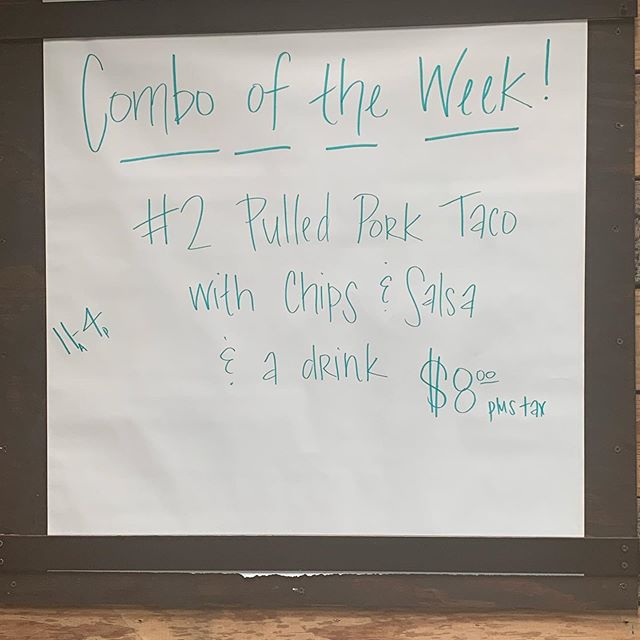 Combo of the Week!
#2 Pulled Pork Taco
with Chips & Salsa
& a drink $8.00
plus tax
11A-4P